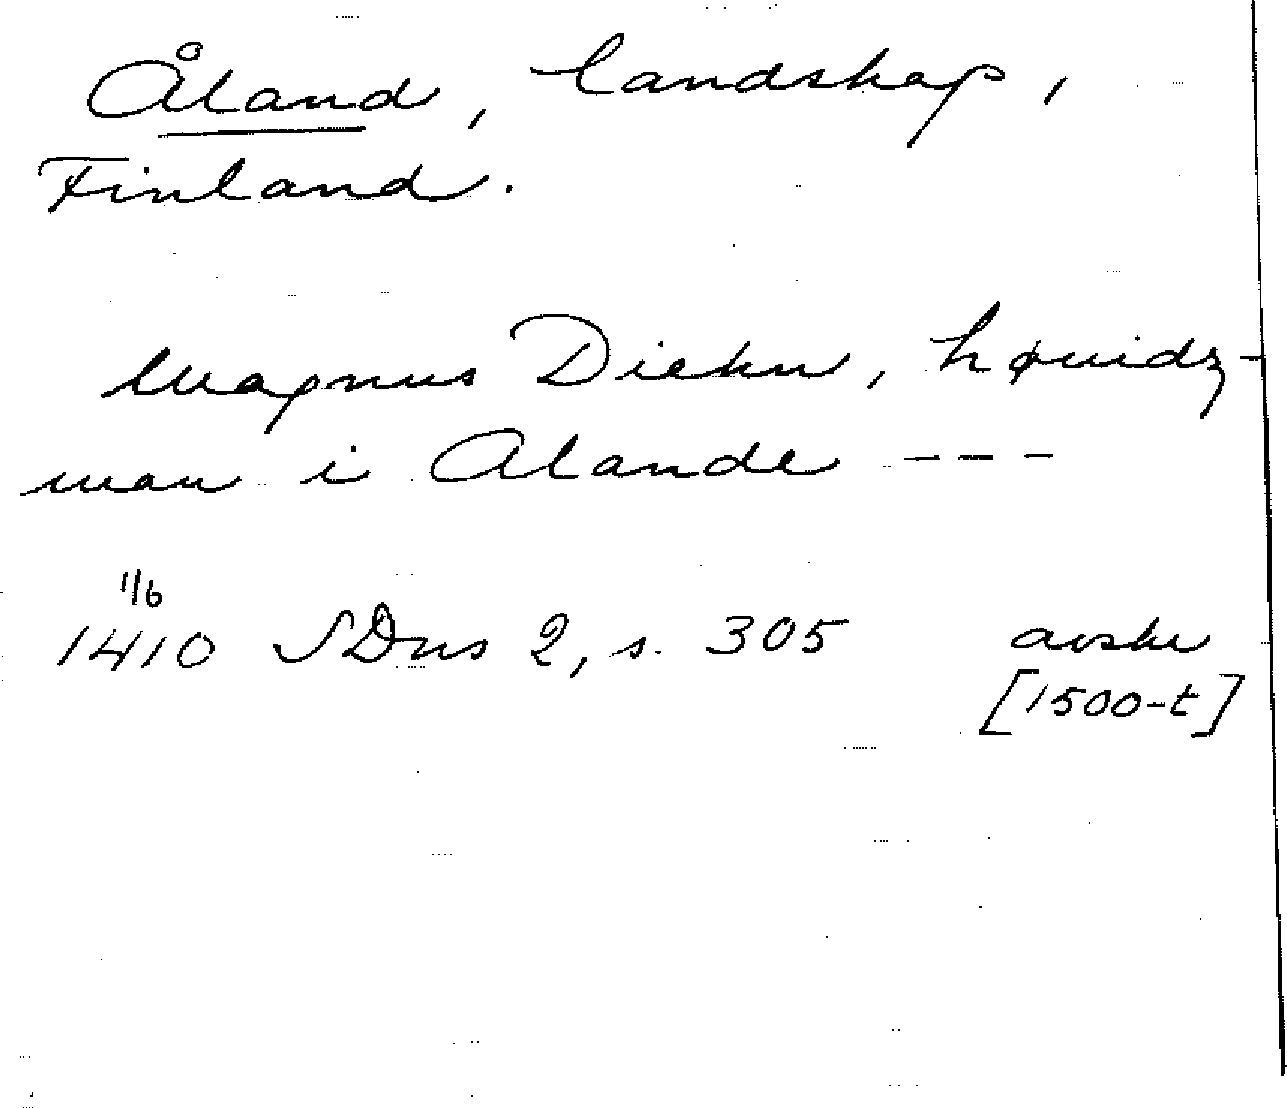 Åland, landskap,
Finland.
Magnus Diekn, høuidz-
man i Alande ---
11/6
1410 SDns 2, s. 305 avskr
[1500-t]